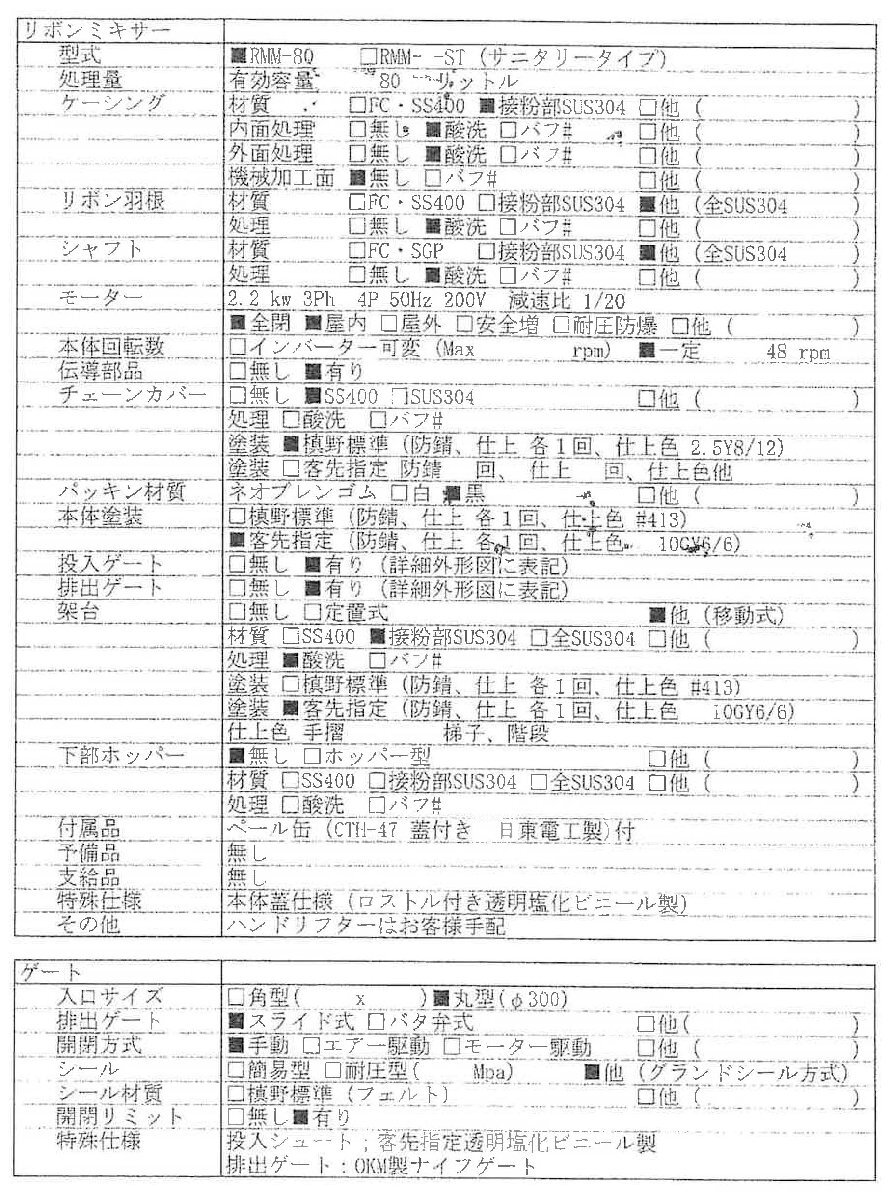 リボンミキサー
型式 ■RMM-80 □RMM- -ST (サニタリータイプ)
処理量 有効容量 80 リットル
ケーシング 材質 □FC・SS400 ■接粉部SUS304 □他 ( )
内面処理 □無し ■酸洗 □バフ# □他 ( )
外面処理 □無し ■酸洗 □バフ# □他 ( )
機械加工面 ■無し □バフ# □他 ( )
リボン羽根 材質 □FC・SS400 □接粉部SUS304 ■他 (全SUS304 )
処理 □無し ■酸洗 □バフ# □他 ( )
シャフト 材質 □FC・SGP □接粉部SUS304 ■他 (全SUS304 )
処理 □無し ■酸洗 □バフ# □他 ( )
モーター 2.2 kw 3Ph 4P 50Hz 200V 減速比 1/20
■全閉 ■屋内 □屋外 □安全増 □耐圧防爆 □他 ( )
本体回転数 □インバーター可変 (Max rpm) ■一定 48 rpm
伝導部品 □無し ■有り
チェーンカバー □無し ■SS400 □SUS304 □他 ( )
処理 □酸洗 □バフ#
塗装 ■槙野標準 (防錆、仕上 各1回、仕上色 2.5Y8/12)
塗装 □客先指定 防錆 回、 仕上 回、仕上色他
パッキン材質 ネオプレンゴム □白 ■黒 □他 ( )
本体塗装 □槙野標準 (防錆、仕上 各1回、仕上色 #413)
■客先指定 (防錆、仕上 各1回、仕上色 10GY6/6)
投入ゲート □無し ■有り (詳細外形図に表記)
排出ゲート □無し ■有り (詳細外形図に表記)
架台 □無し □定置式 ■他 (移動式)
材質 □SS400 ■接粉部SUS304 □全SUS304 □他 ( )
処理 ■酸洗 □バフ#
塗装 □槙野標準 (防錆、仕上 各1回、仕上色 #413)
塗装 ■客先指定 (防錆、仕上 各1回、仕上色 10GY6/6)
仕上色 手摺 梯子、階段
下部ホッパー ■無し □ホッパー型 □他 ( )
材質 □SS400 □接粉部SUS304 □全SUS304 □他 ( )
処理 □酸洗 □バフ#
付属品 ペール缶 (CTH-47 蓋付き 日東電工製)付
予備品 無し
支給品 無し
特殊仕様 本体蓋仕様 (ロストル付き透明塩化ビニール製)
その他 ハンドリフターはお客様手配
ゲート
入口サイズ □角型( x )■丸型(φ300)
排出ゲート ■スライド式 □バタ弁式 □他( )
開閉方式 ■手動 □エアー駆動 □モーター駆動 □他 ( )
シール □簡易型 □耐圧型( Mpa) ■他 (グランドシール方式)
シール材質 □槙野標準 (フェルト) □他 ( )
開閉リミット □無し■有り
特殊仕様 投入シュート;客先指定透明塩化ビニール製
排出ゲート:OKM製ナイフゲート